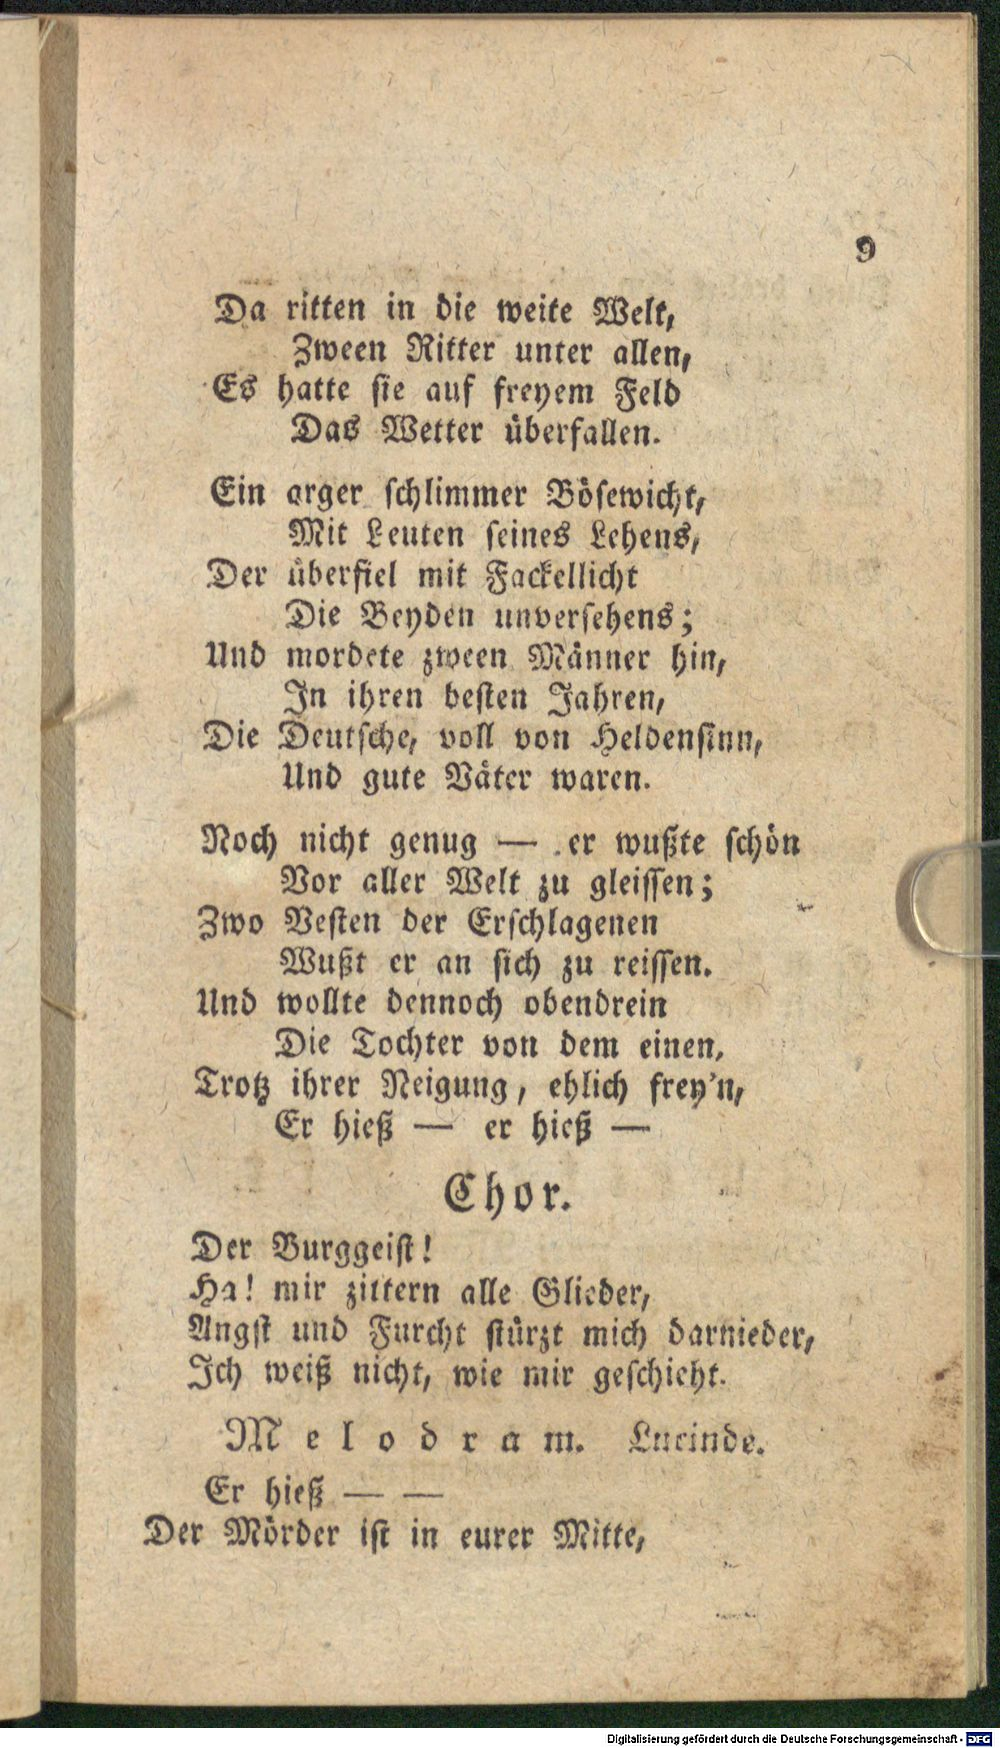 9
Da ritten in die weite Welt,
Zween Ritter unter allen,
Es hatte sie auf freyem Feld
Das Wetter überfallen.
Ein arger schlimmer Bösewicht,
Mit Leuten seines Lehens,
Der überfiel mit Fackellicht
Die Beyden unversehens;
Und mordete zween Männer hin,
In ihren besten Jahren,
Die Deutsche, voll von Heldensinn,
Und gute Väter waren.
Noch nicht genug — er wußte schön
Vor aller Welt zu gleissen;
Zwo Vesten der Erschlagenen
Wußt er an sich zu reissen.
Und wollte dennoch obendrein
Die Tochter von dem einen,
Trotz ihrer Neigung, ehlich frey'n,
Er hieß — er hieß —
Chor.
Der Burggeist!
Ha! mir zittern alle Glieder,
Angst und Furcht stürzt mich darnieder,
Ich weiß nicht, wie mir geschieht.
Melodram. Lucinde.
Er hieß — —
Der Mörder ist in eurer Mitte,
Digitalisierung gefördert durch die Deutsche Forschungsgemeinschaft - DFG